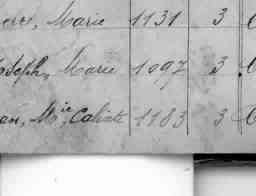 Marie 1131 3
oseph, Marie 1097 3
an, Mie Calixte 1183 3